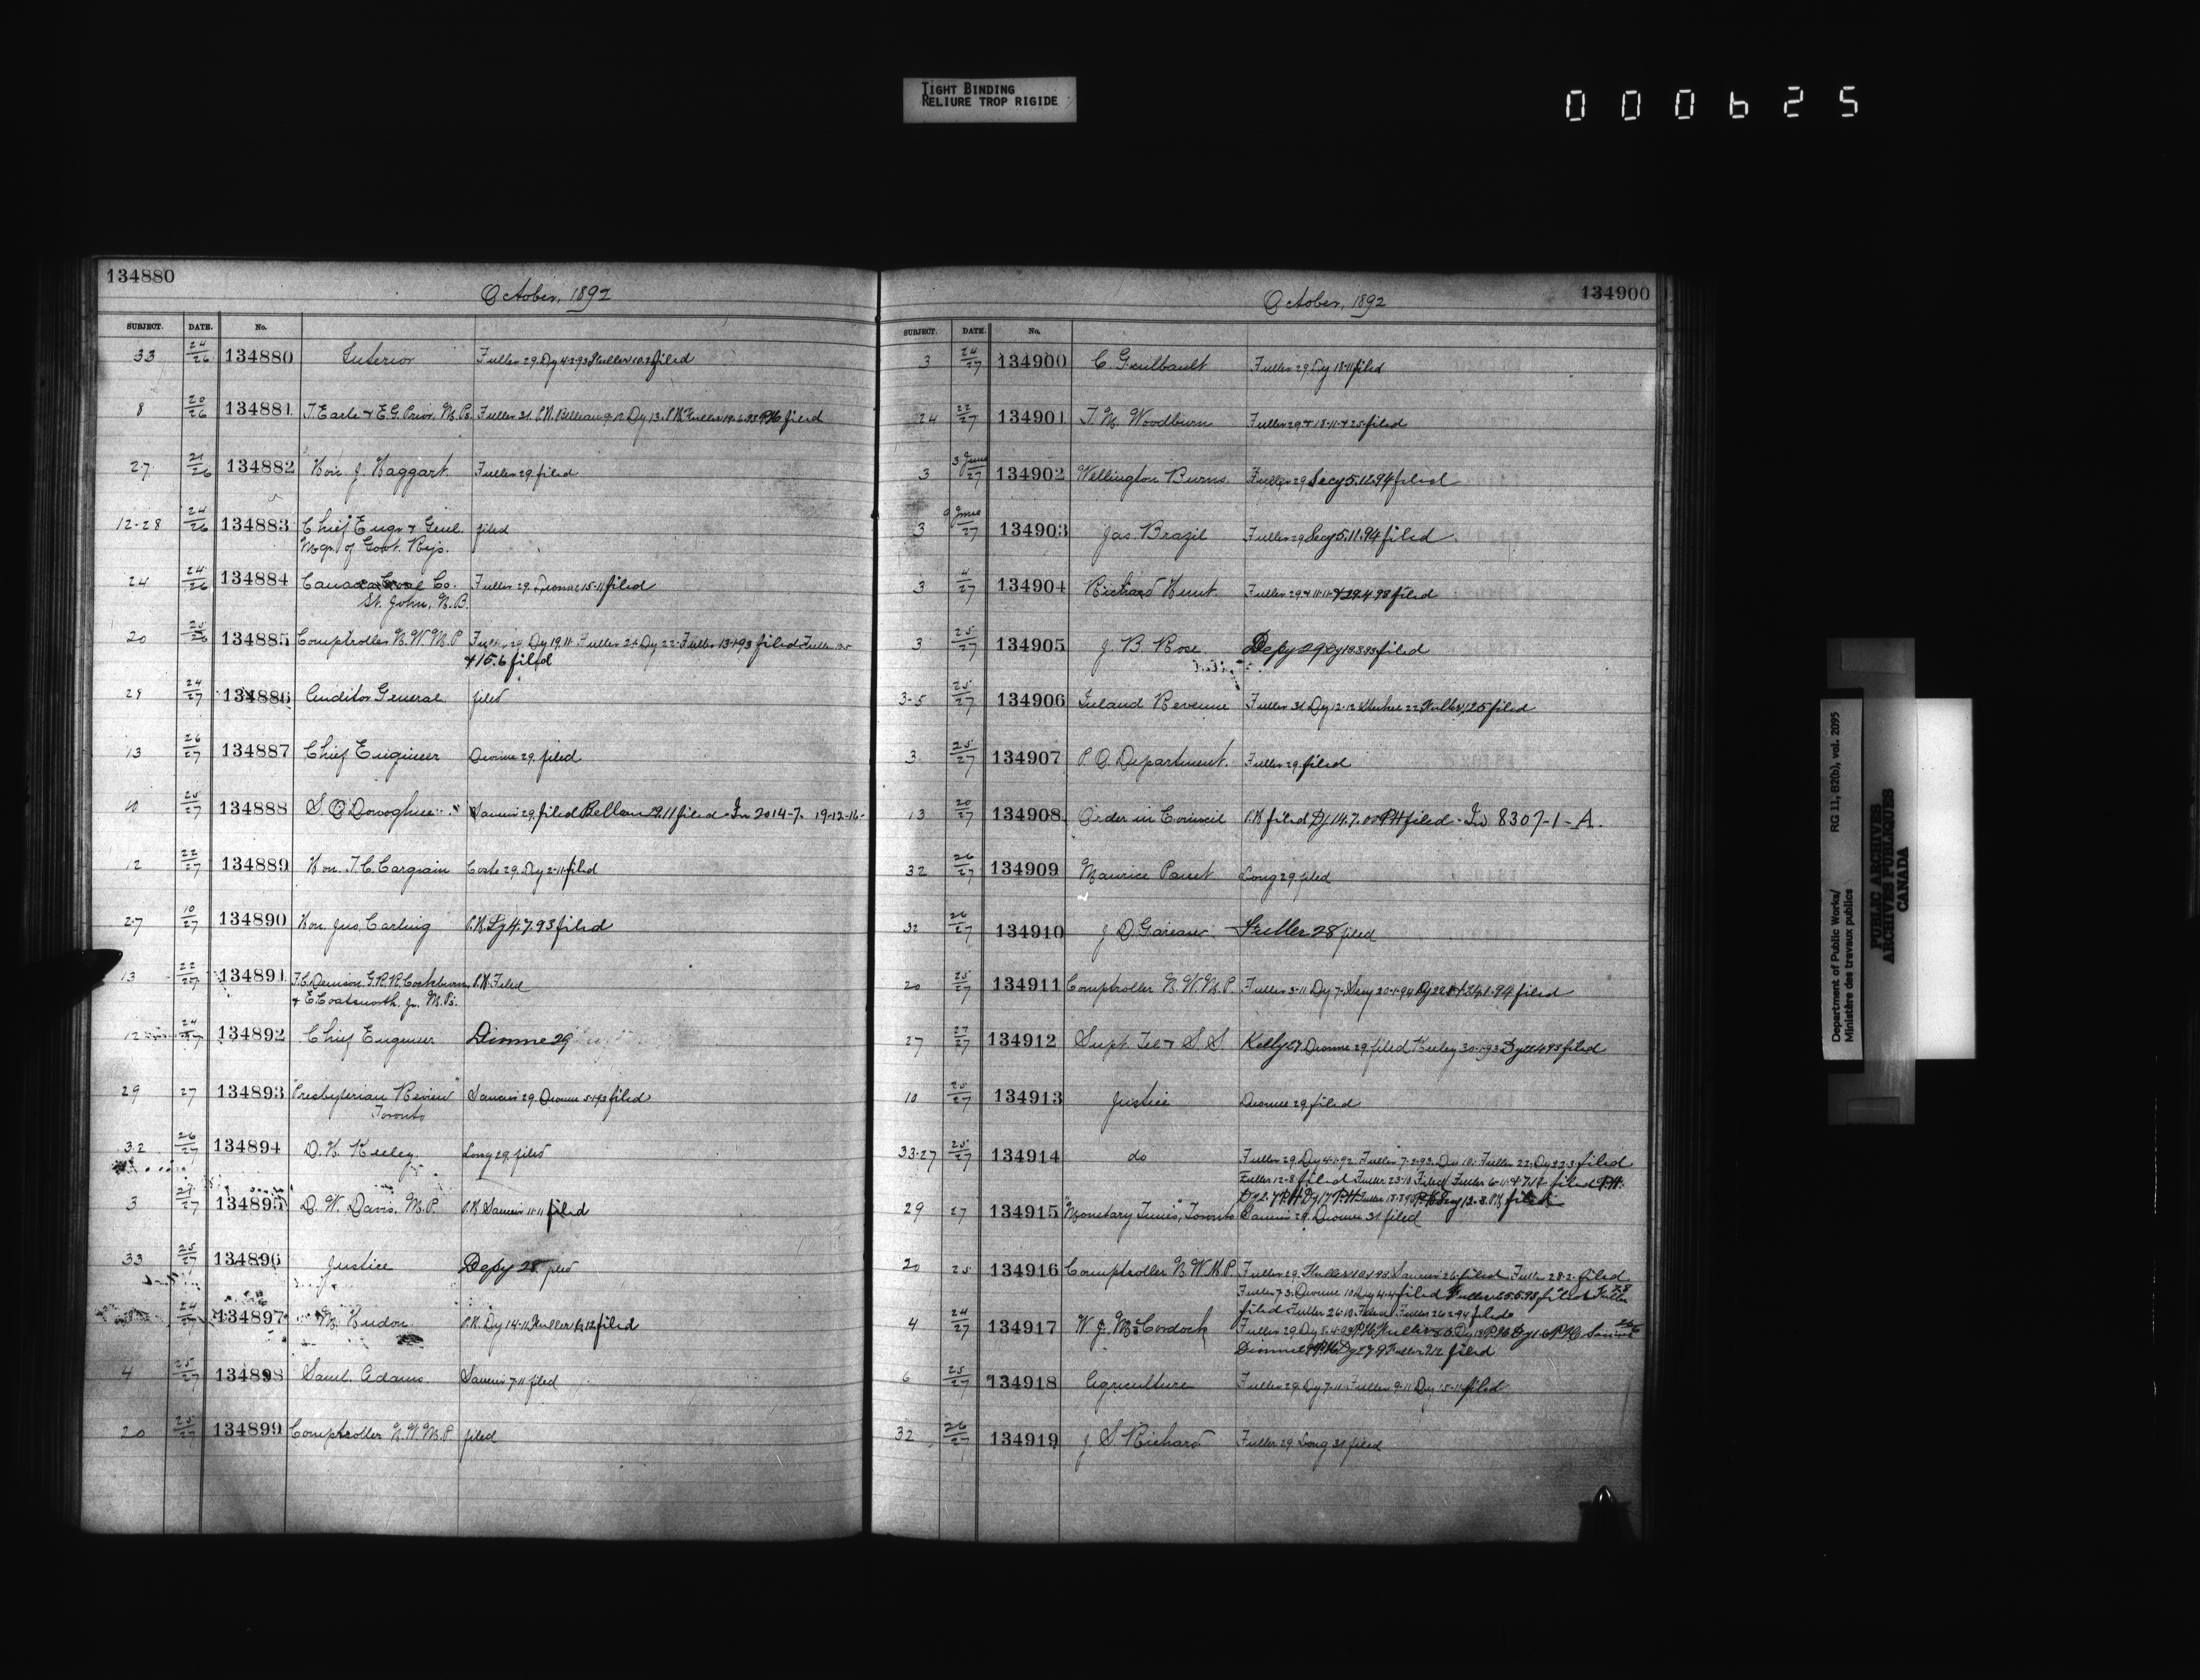 TIGHT BINDING
RELIURE TROP RIGIDE
000625
134880
October, 1892
SUBJECT. DATE. No.
33 24/26 134880 Interior Fuller 29. Dy 4-2-93 Fuller 10.2 filed
8 20/26 134881 T. Earle & E.G. Prior, M.Ps. Fuller 31. P.H. Dy 13. P.H. Fuller P.H. filed
27 21/26 134882 Hon. J. Haggart Fuller 29. filed
12-28 24/26 134883 Chief Engr & Genl. filed
Mgr. of Govt. Rys.
24 24/26 134884 Canada Coal Co. Fuller 29. Dionne 15-11 filed
St. John, N.B.
20 25/26 134885 Comptroller N.W.M.P. Fuller 29. Dy 19.11 Fuller Dy 22. Fuller 13-1-93 filed Fuller
& 15.6 filed
29 24/27 134886 Auditor General filed
13 26/27 134887 Chief Engineer Dionne 29. filed
10 25/27 134888 S. O'Donoghue Samuis 29. filed 29.11 filed In 2014-7. 19-12-16-
12 22/27 134889 Hon. T.C. Casgrain Coste 29. Dy 2-11 filed
27 10/27 134890 Hon. Jno. Carling P.H. Dy 4.7.93 filed
13 22/27 134891 F.C. Denison, G.R.R. Cockburn P.H. Filed
& E. Coatsworth, Jr. M.Ps.
12 24/27 134892 Chief Engineer Dionne 29
29 27 134893 "Presbyterian Review" 29. Dionne filed
Toronto
32 26/27 134894 D.H. Keeley Long 29. filed
3 134895 D.W. Davis, M.P. P.H. 11-11 filed
33 25/27 134896 Justice Depy 28 filed
24/27 134897 M. Hudon P.H. Dy 14-11 Fuller filed
4 25/27 134898 Saml. Adams 7-11 filed
20 25/27 134899 Comptroller N.W.M.P. filed
134900
October, 1892
SUBJECT. DATE. No.
3 24/27 134900 C. Guilbault Fuller 29. Dy 18-11 filed
24 22/27 134901 T.M. Woodburn Fuller 29 & 18-11 & 25 filed
3 3 June/27 134902 Wellington Burns Fuller 29 Secy 5.12.94 filed
3 9 June/27 134903 Jas. Brazil Fuller 29 Secy 5.11.94 filed
3 4/27 134904 Richard Hunt Fuller 29 & 11-11 & 29.4.93 filed
3 25/27 134905 J.B. Rose Depy 29 filed
3-5 25/27 134906 Inland Revenue Fuller 31 Dy 12-12 22 Fuller filed
3 25/27 134907 P.O. Department Fuller 29 filed
13 20/27 134908 Order in Council P.H. filed Dy 14.7.00 P.H. filed. In 8307-1-A.
32 26/27 134909 Maurice Panet Long 29 filed
32 26/27 134910 J.D. Gareau Fuller 28 filed
20 25/27 134911 Comptroller N.W.M.P. Fuller 3-11 Dy 7. Secy 20-1-94 filed
27 27/27 134912 Supt. Tel & S.S. Kelly 27 Dionne 29. filed Keeley filed
10 25/27 134913 Justice Dionne 29 filed
33-27 25/27 134914 do Fuller 29. Dy Fuller 7-2-93. Dy Fuller 22. Dy 23.3 filed
Fuller 12-8 filed Fuller 23-10 Filed Fuller filed P.H.
Dy 2.7 P.H. Dy 17 P.H. Fuller filed
29 27 134915 "Monetary Times", Toronto 29. Dionne 31 filed
20 25 134916 Comptroller N.W.M.P. Fuller 29. 26 filed Fuller 28-2 filed
Fuller 7-3. Dionne Dy 4-4 filed Fuller filed Fuller
filed Fuller 26-10 Filed Fuller 26-2-94 filed
4 24/27 134917 W.J. McCordock Fuller 29. Dy
Dionne Fuller filed
6 25/27 134918 Agriculture Fuller 29. Dy 7-11. Fuller 9-11 Dy 15-11 filed
32 26/27 134919 J.S. Richard Fuller 29. Long 31 filed
Department of Public Works/ RG 11, B2(b), vol. 2095
Ministère des travaux publics
PUBLIC ARCHIVES
ARCHIVES PUBLIQUES
CANADA